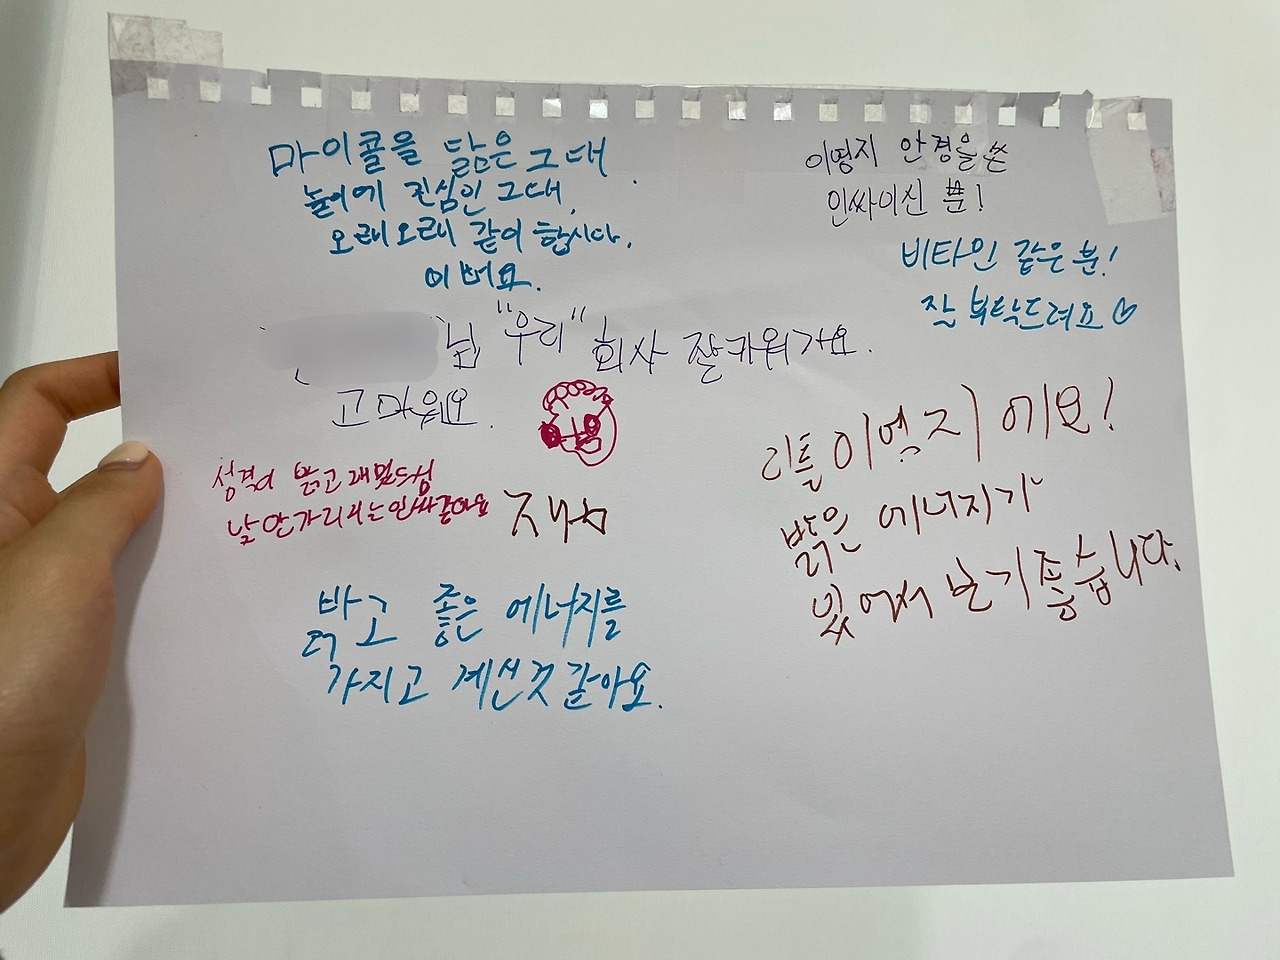 마이콜을 닮은 그대.
놀이에 진심인 그대,
오래오래 같이 합시다.
이뻐요.
이영지 안경을 쓴
인싸이신 분!
비타민 같은 분!
잘 부탁드려요♡
님 "우리" 회사 잘키워가요.
고마워요.
성격이 밝고 재밌으심
낯안가리시는 인싸 좋아요
리틀 이영지 에요!
밝은 에너지가
있어서 보기좋습니다.
밝고 좋은 에너지를
가지고 계신것 같아요.